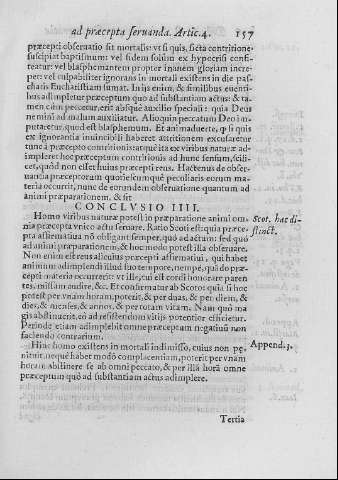 ad præcepta seruanda. Artic. 4. 157
præcepti obseruatio sit mortalis: vt si quis, ficta contritione,
suscipiat baptismum: vel fidem solùm ex hypocrisi confi-
teatur: vel blasphemantem propter inanem gloriam incre-
pet: vel culpabiliter ignorans in mortali existens in die pas-
chæ Eucharistiam sumat. In ijs enim, & similibus euenti-
bus adimpletur præceptum quo ad substantiam actus: & ta-
men cùm peccetur, erit absque auxilio speciali: quia Deus
neminem ad malum auxiliatur. Alioquin peccatum Deo im-
putaretur, quod est blasphemum. Et animaduerte, q si quis
ex ignorantia inuincibili haberet attritionem excusaretur
tunc à præcepto contritionis: atque ita ex viribus naturæ ad-
impleret hoc præceptum contritionis ad hunc sensum, scili-
cet, quòd non esset huius præcepti reus. Hactenus de obser-
uantia præceptorum quotiescumque peculiaris eorum ma-
teria occurrit, nunc de eorundem obseruatione quantum ad
animi præparationem, & sit
CONCLVSIO IIII.
Homo viribus naturæ potest in præparatione animi om-
nia præcepta vnico actu seruare. Ratio Scoti est: quia præce-
pta affirmatiua nõ obligant semper, quo ad actum: sed quò
ad animi præparationem, & hoc modo potest illa obseruare.
Non enim est reus alicuius præcepti affirmatiui, qui habet
animum adimplendi illud suo tempore, nempè, quãdo præ-
cepti materia occurrerit: vt ille, cui est cordi honorare paren-
tes, missam audire, &c. Et confirmatur ab Scoto: quia si hoc
potest per vnam horam, poterit, & per duas, & per diem, &
dies, & menses, & annos, & per totam vitam. Nam quò ma-
gis abstinuerit, eò ad resistendum vitijs potentior efficietur.
Periode etiam adimplebit omne præceptum negatiuũ non
faciendo contrarium.
Scot. hac di-
stinct.
Hinc homo existens in mortali indimisso, cuius non pę-
nituit, neque habet modò complacentiam, poterit per vnam
horam abstinere se ab omni peccato, & per illã horã omne
præceptum quò ad substantiam actus adimplere.
Append. 3.
Tertia